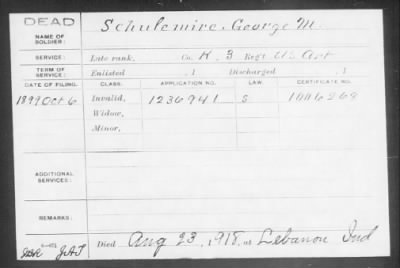 DEAD
NAME OF SOLDIER: Schulemire, George M.
SERVICE: Late rank, Co. K, 3 Reg't US Art
TERM OF SERVICE: Enlisted , 1 Discharged , 1
DATE OF FILING. CLASS. APPLICATION NO. LAW. CERTIFICATE NO.
1899 Oct 6 Invalid, 1236941 S 1006269
Widow,
Minor,
ADDITIONAL SERVICES:
REMARKS:
Died Aug 23, 1918, at Lebanon Ind